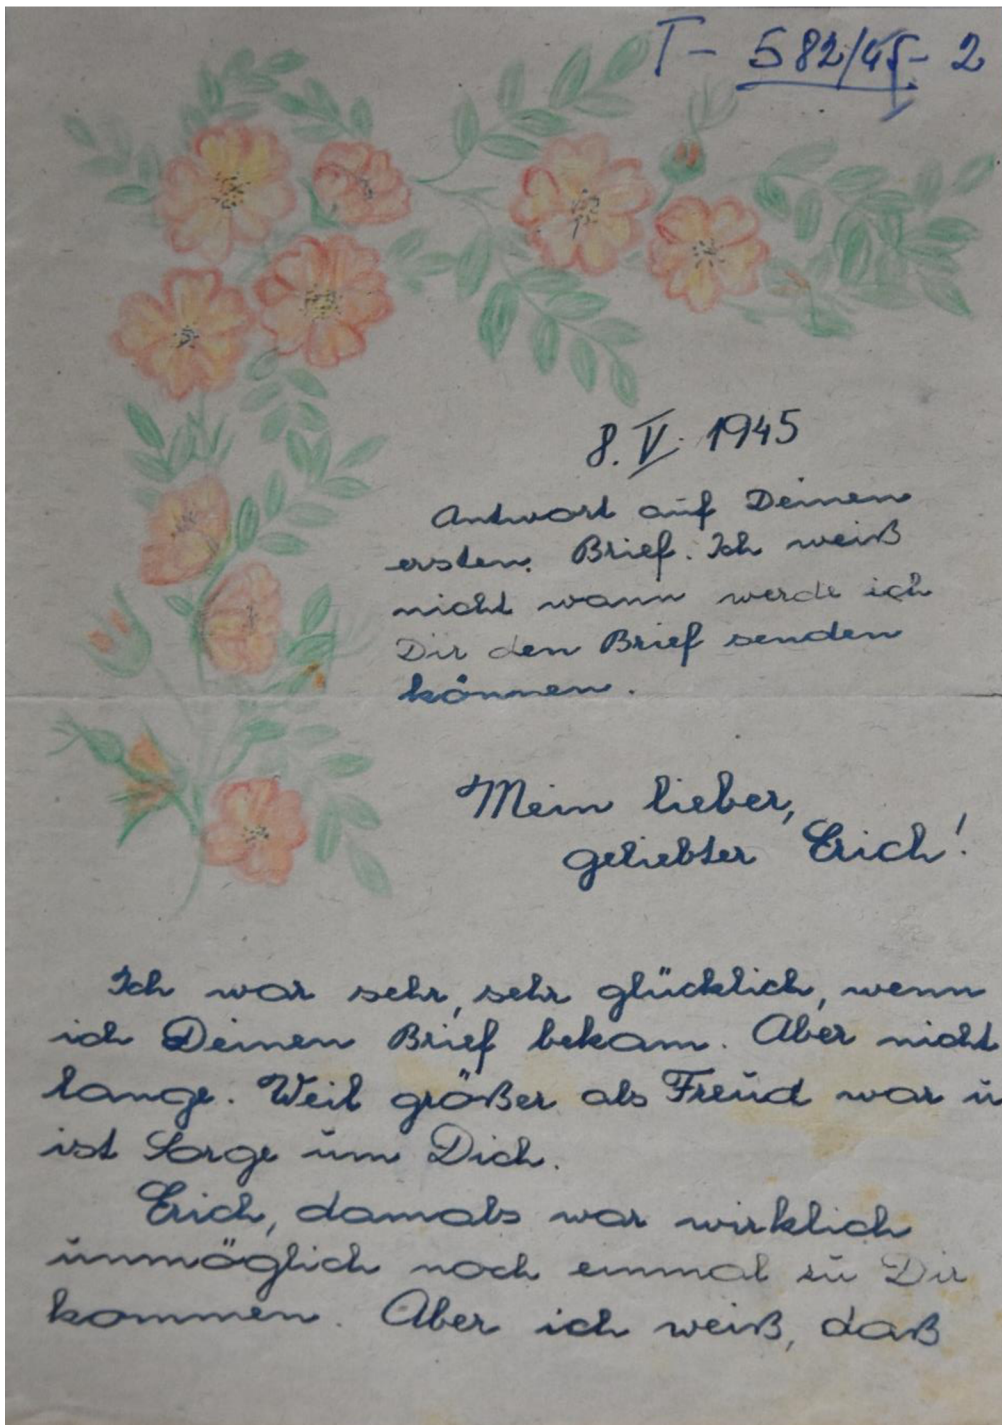 T- 582/45- 2
8. V. 1945
Antwort auf Deinen
ersten Brief. Ich weiß
nicht wann werde ich
Dir den Brief senden
können.
Mein lieber,
geliebter Erich!
Ich war sehr, sehr glücklich, wenn
ich Deinen Brief bekam. Aber nicht
lange. Weil größer als Freud war u
ist Sorge um Dich.
Erich, damals war wirklich
unmöglich noch einmal zu Dir
kommen. Aber ich weiß, daß